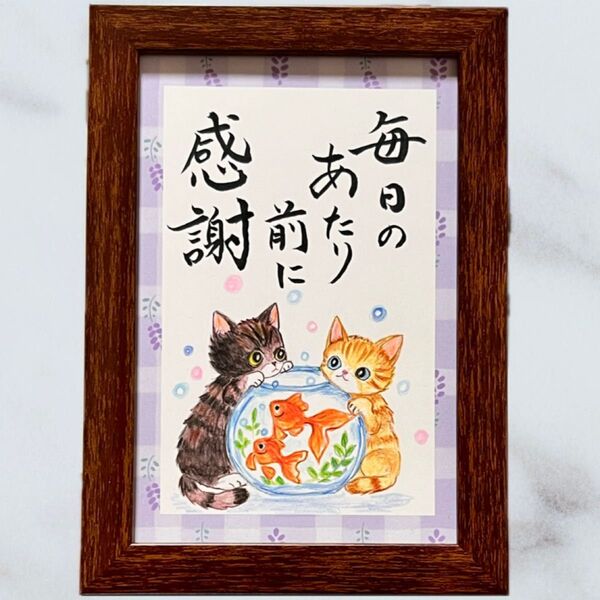 毎日の
あたり
前に
感謝